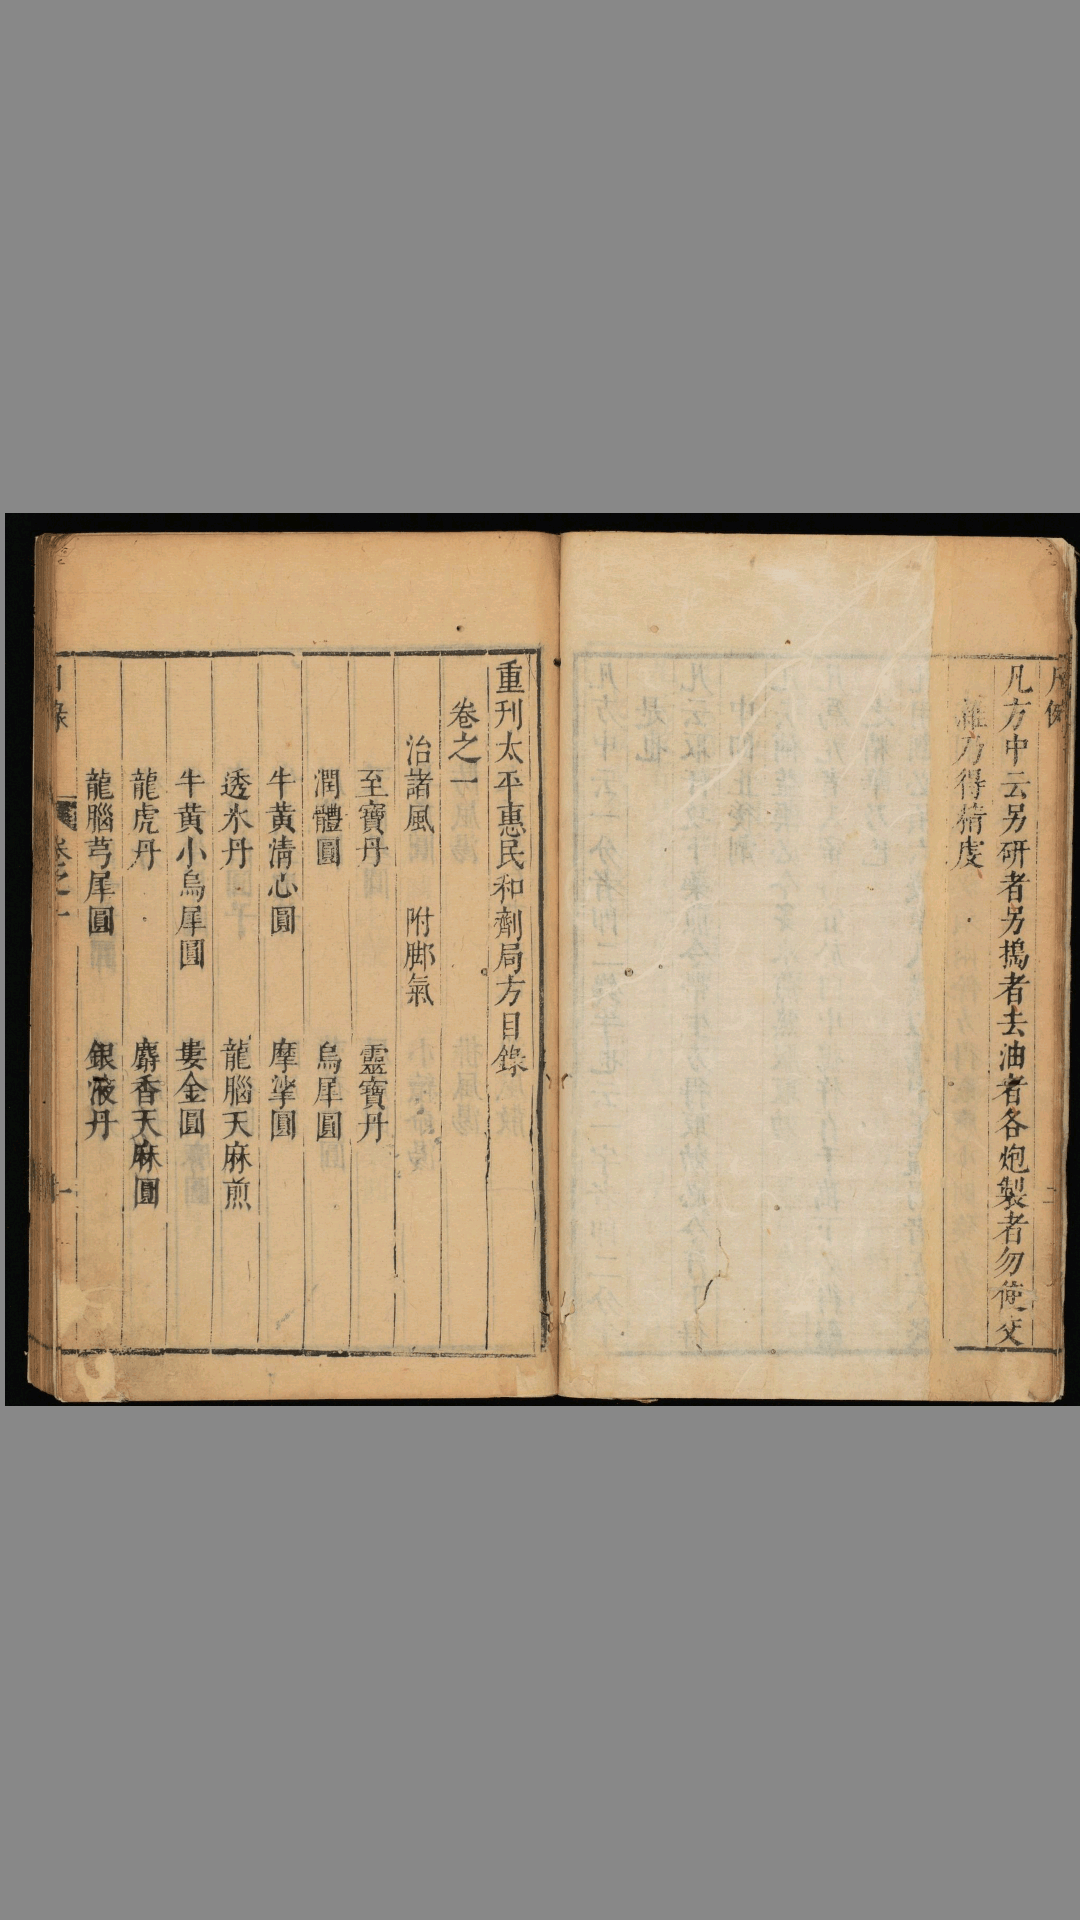 凡方中云另研者另搗者去油者各炮製者勿使交
雜乃得精虔
重刊太平惠民和劑局方目錄
卷之一
治諸風 附脚氣
至寶丹 靈寶丹
潤體圓 烏犀圓
牛黄清心圓 摩挲圓
透氷丹 龍腦天麻煎
牛黄小烏犀圓 婁金圓
龍虎丹 麝香天麻圓
龍腦芎犀圓 銀液丹
目錄 卷之一 一